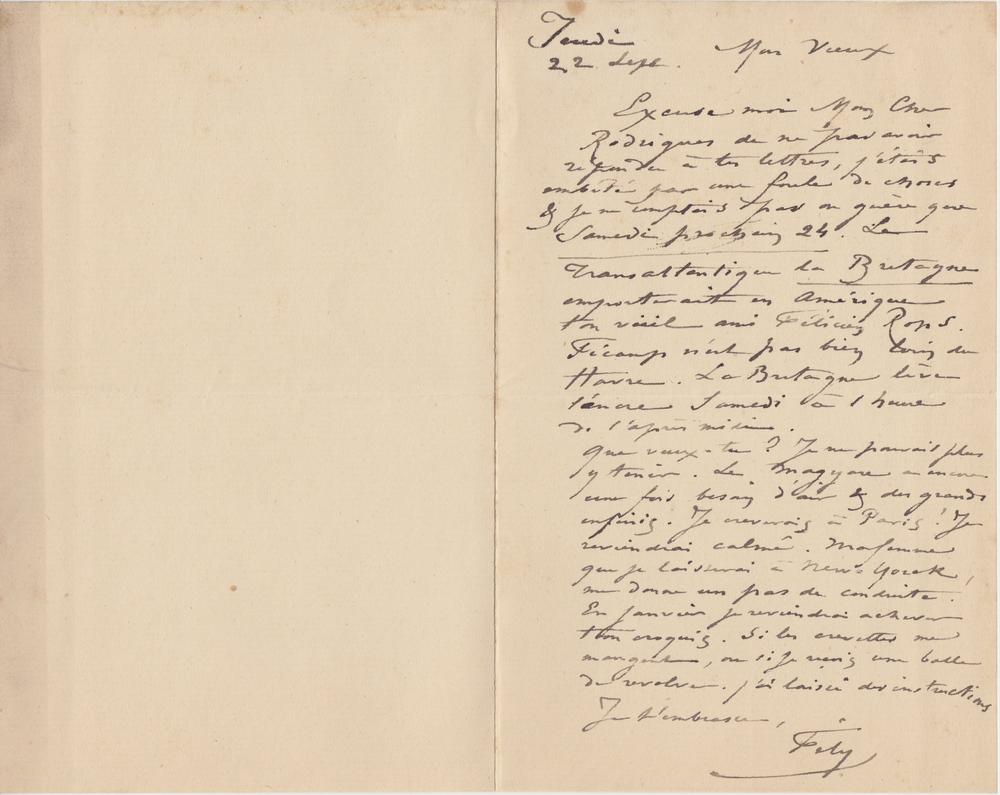 Jeudi
22 Sept.
Mon Vieux
Excuse moi Mon Cher
Rodrigues de ne pas avoir
répondu à tes lettres, j'étais
embêté par une foule de choses
& je ne comptais pas ou guère que
Samedi prochain 24. Le
Transatlantique la Bretagne
emporterait en Amérique
ton vieil ami Félicien Rops.
Fécamp n'est pas bien loin du
Havre. La Bretagne lève
l'ancre Samedi à 1 heure
de l'après midi.
Que veux-tu? Je ne pouvais plus
y tenir. Le Magyare a encore
une fois besoin d'air & des grands
infinis. Je crèverais à Paris! Je
reviendrai calmé. Ma femme
que je laisserai à New-Yorck,
me donne un pas de conduite.
En janvier je reviendrai achever
ton croquis. Si les crevettes me
mangent, ou si je reçois une balle
de revolver. j'ai laissé des instructions
Je t'embrasse,
Fély